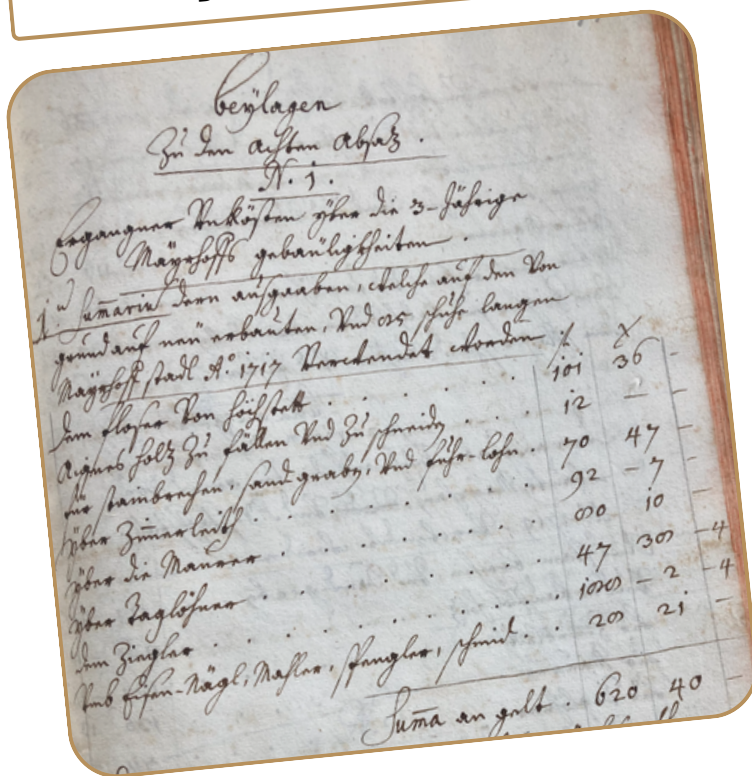 beÿlagen
Zu den achten absaz.
N. 1.
Ergangner Vnkösten yber die 3-Jährige
Maÿrhoffs gebäuligkheiten.
1. Summarin dern ausgaaben, welche auf den Von
grund auf neu erbauten, Vnd 85 schuhe langen
Maÿrhoff stadl Aõ. 1717 Verwendet worden f. x
dem floser Von höchstett . . . . . . 101 36 –
Aignes holz Zu fällen Vnd Zu schneiden . . . 12 –
für stainbrechen, sand graben, Vnd fuhr-lohn . 70 47 –
yber Zimerleith . . . . . . . 92 – 7 –
yber die Maurer . . . . . . . 80 10 –
yber Taglöhner . . . . . . . 47 38 – 4
dem Ziegler . . . . . . . 188 – 2 – 4
Vmb Eisen-Nägl, Mahler, spengler, schmid . . 28 21 –
Suma an gelt . 620 40 –